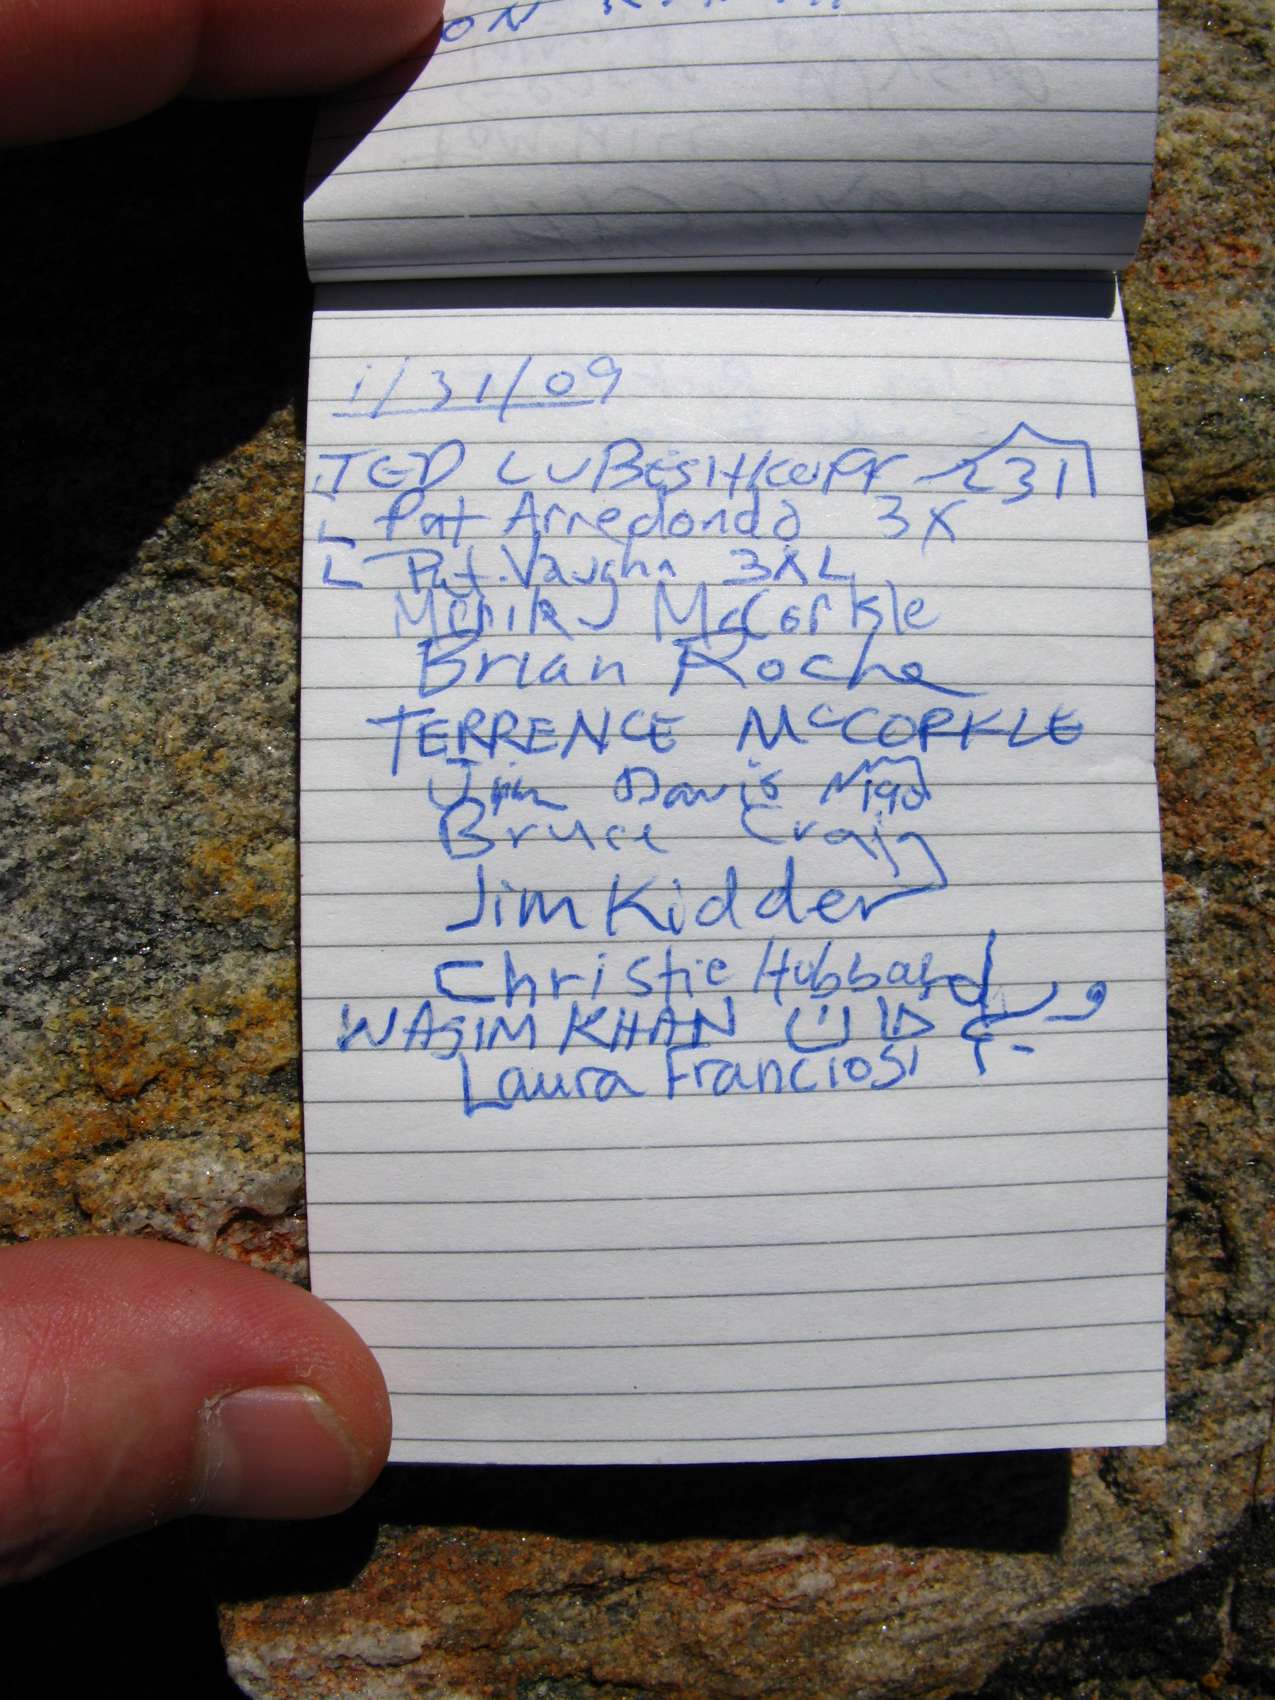 ON
1/31/09
TED 231
L Pat Arredondo 3X
L Pat Vaughn 3XL
McCorkle
Brian Roche
TERRENCE McCORKLE
Jim Davis 190
Bruce Craig
Jim Kidder
Christie Hubbard
WASIM KHAN
Laura Franciosi